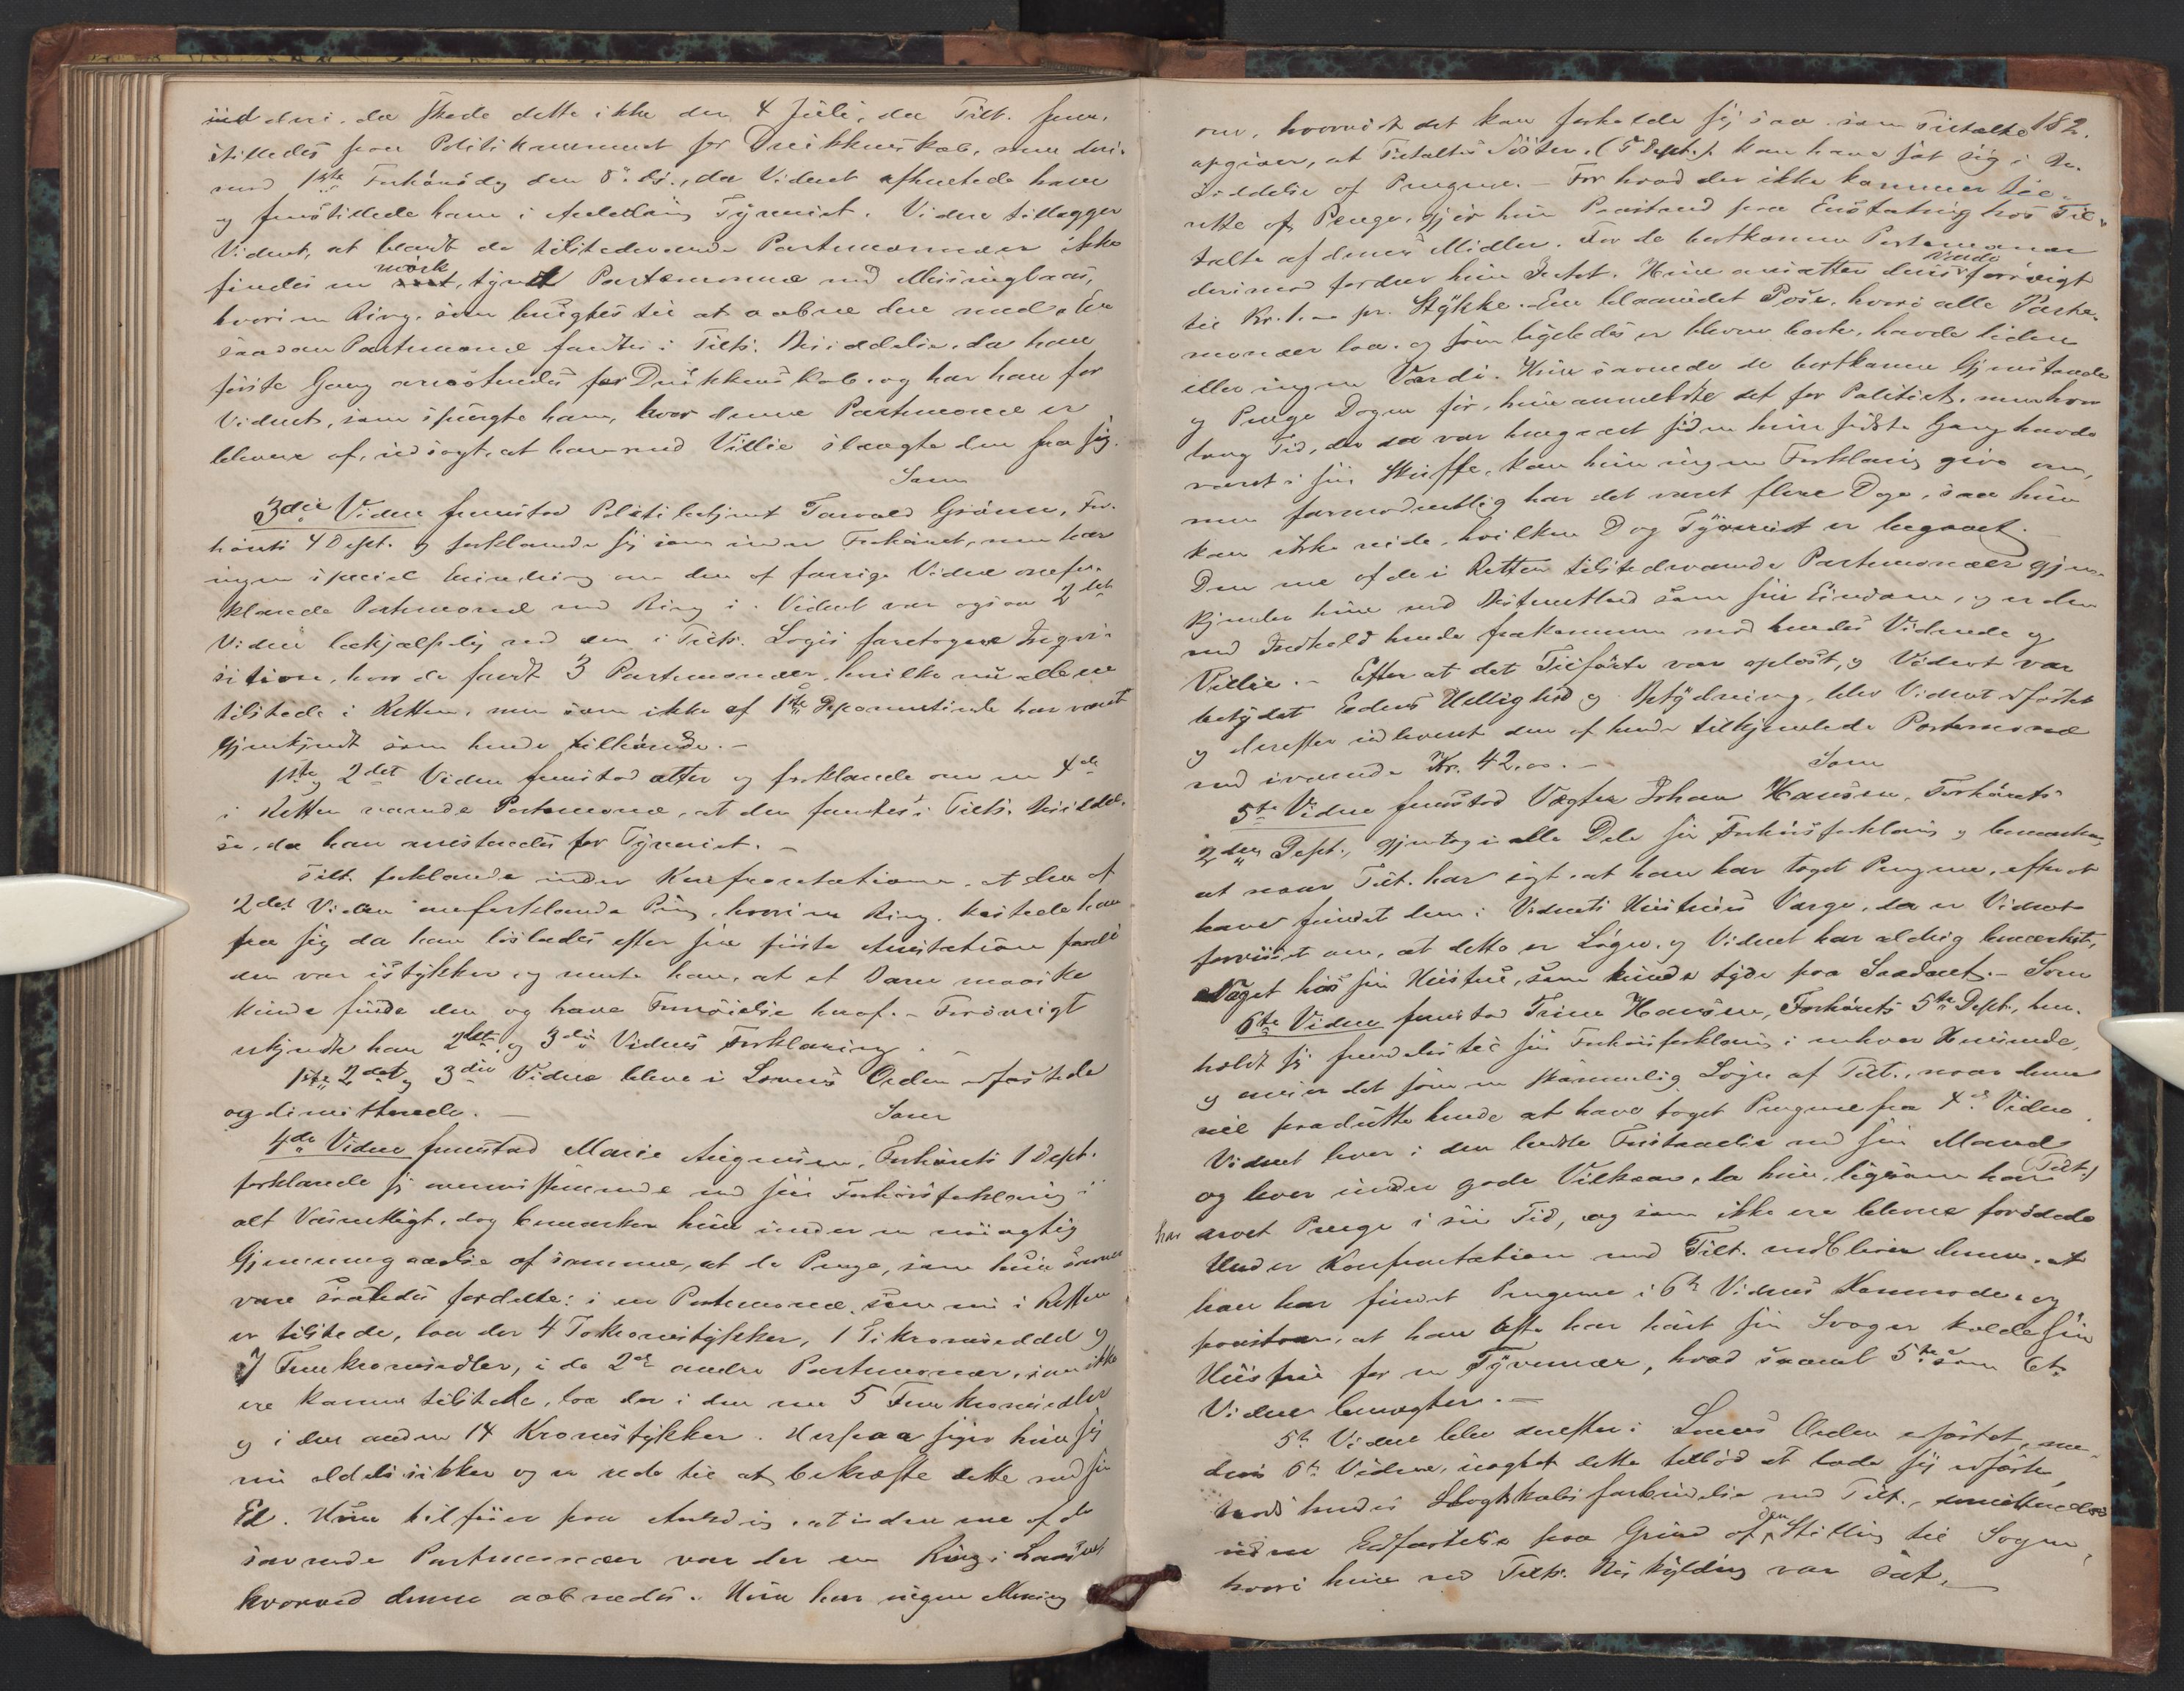 ud deri, da skede dette ikke den 4 Juli, da Tilt. frem-
stilledes paa Politikammeret for Drikkenskab, men deri-
mod 1ste Forhørsdag den 8. ds., da Vidnet afhentede ham
og fremstillede ham i Anledning Tyveriet. Videre tillægger
Vidnet, at blandt de tilstedeværende Portemonnæer ikke
findes en mørk, tynd Portemonnæ med Messinglaas,
hvori en Ring, som brugtes til at aabne den med. En
saadan Portemonæ fandtes i Tilts. Besiddelse, da han
første Gang arresteredes for Drikkenskab, og har han for
Vidnet, som spurgte ham, hvor denne Portemonæ er
bleven af, udsagt, at han med Villie slængte den fra sig.
Som
3die Vidne fremstod Politibetjent Torvald Grønn, For-
hørets 4 Dept. og forklarede sig som under Forhøret, men har
ingen speciel Erindring om den af forrige Vidne omfor-
klarede Portemonæ med Ring i. Vidnet var ogsaa 2det
Vidne behjælpelig ved den i Tilts. Logis foretagne Inqvi-
sition, hvor de fandt 3 Portemonæer, hvilke nu alle ere
tilstede i Retten, men som ikke af 1ste Deponentinde har været
gjenkjendt som hende tilhørende. -
1ste og 2det Vidne fremstod atter og forklarede om en 4de
i Retten værende Portemonæ, at den fandtes i Tilts. Besiddel-
se, da han arresteredes for Tyveriet. -
Tilt. forklarede under Konfrontationen, at den af
2det Vidne omforklarede Pung, hvori en Ring, kastede han
fra sig da han løslodes efter sin første Arrestation fordi
den var istykker og mente han, at et Barn maaske
kunde finde den og have Fornøielse heraf. - Forøvrigt
erkjendte han 2det og 3die Vidnes Forklaring. -
1ste 2det og 3die Vidne bleve i Lovens Orden edfæstede
og dimitterede. - Som
4de Vidne fremstod Marie Augensen, Forhørets 1 Dept.
forklarede sig overensstemmende med sin Forhørsforklaring i
alt Væsentligt, dog bemærker hun under en nøiagtig
Gjennemgaaelse af samme, at de Penge, som hun savner
vare saaledes fordelte: i en Portemonæ, som nu i Retten
er tilstede, laa der 4 Tokronestykker, 1 Tikroneseddel og
7 Femkronesedler, i de 2de andre Portemonæer, som ikke
ere komne tilstede, laa der i den ene 5 Femkronesedler
og i den anden 14 Kronestykker. Herpaa siger hun sig
nu aldeles sikker og er rede til at bekræfte dette med sin
Ed. Hun tilføier paa Anledning, at i den ene af de
savnede Portemonæer var der en Ring i Laaset
hvorved denne aabnedes. Hun har ingen Mening
182.
om, hvorvidt det kan forholde sig saa som Tiltalte
opgiver, at Tiltaltes Søster (5 Dept.) kan have sat sig i Be-
siddelse af Pengene. - For hvad der ikke kommer til-
rette af Penge, gjør hun Paastand paa Erstatning hos Til-
talte af dennes Midler. For de bortkomne Portemonæer
derimod fordrer hun Intet. Hun ansætter deres Værdi forøvrigt
til Kr. 1.00 pr. Stykke. En blaarudet Pose, hvori alle Porte-
monæer laa, og som ligeledes er bleven borte, havde liden
eller ingen Værdi. Hun savnede de bortkomne Gjenstande
og Penge Dagen før, hun anmeldte det for Politiet, men hvor
lang Tid, der da var hengaaet siden hun sidste Gang havde
været i sin Skuffe, kan hun ingen Forklaring give om,
men formodentlig har det været flere Dage, saa hun
kan ikke vide, hvilken Dag Tyveriet er begaaet.
Den ene af de i Retten tilstedeværende Portemonæer gjen-
kjender hun med Bestemthed som sin Eiendom, og er den
med Indhold hende frakommen mod hendes Vidende og
Villie. - Efter at det Tilførte var oplæst, og Vidnet var
betydet Edens Hellighed og Betydning, blev Vidnet edfæstet
og derefter udleveret den af hende tilkjendte Portemonæ
med ivarende Kr. 42.00. - Som
5te Vidne fremstod Vægter Johan Hansen, Forhørets
2den Dept., gjentog i alle Dele sin Forhørsforklaring og bemærker,
at naar Tilt. har sagt, at han har taget Pengene, efter at
have fundet dem i Vidnets Hustrues Værge, da er Vidnet
forvisset om, at dette er Løgn, og Vidnet har aldrig bemærket
Noget hos sin Hustrue, som kunde tyde paa Saadant. - Som
6te Vidne fremstod Trine Hansen, Forhørets 5te Dept., hen-
holdt sig fremdeles til sin Forhørsforklaring i enhver Henseende,
og anser det som en skammelig Løgn af Tilt., naar denne
vil paadutte hende at have taget Pengene fra 4de Vidne.
Vidnet lever i den bedste Forstaaelse med sin Mand
og lever under gode Vilkaar, da hun, ligesom han (Tilt.)
har arvet Penge i sin Tid, og som ikke ere blevne forødede
Under Konfrontation med Tilt. vedbliver denne, at
han har fundet Pengene i 6te Vidnes Kommode, og
paastaar, at han ofte har hørt sin Svoger kalde sin
Hustrue for en Tyvemær, hvad saavel 5te som 6te
Vidne benegter. -
5te Vidne blev derefter i Lovens Orden edfæstet, me-
dens 6te Vidne, uagtet dette tilbød at lade sig edfæste,
trods hendes Slægtskabsforbindelse med Tilt., dimitteredes
uden Edfæstelse paa Grund af den Stilling til Sagen,
hvori hun ved Tilts. Beskyldning var sat. -